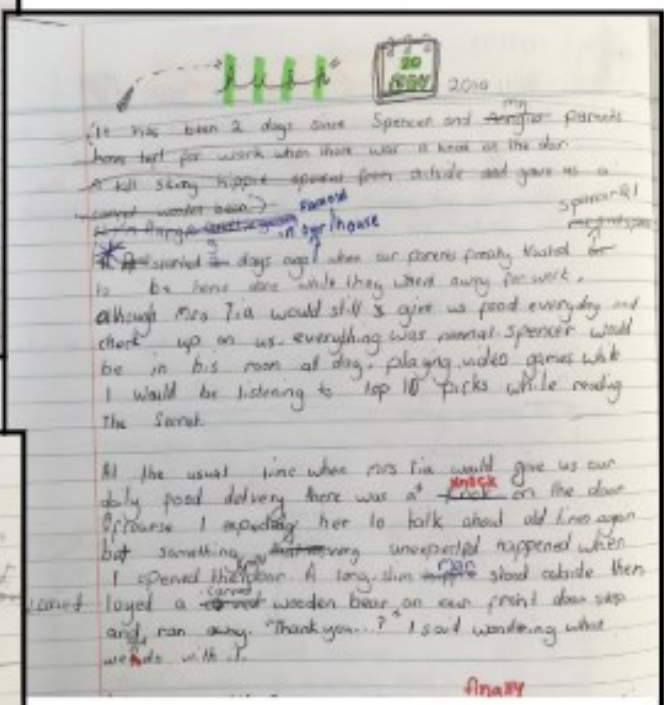 20
2019
It has been 2 days since Spencer and my parents
have left for work when there was a knock on the door
A tall skinny hippie appeared from outside and gave us a
carved wooden bear.
Samoa
in our house
Spencer & I
started 3 days ago when our parents finally trusted
to be home alone while they were away for work.
although Mrs Tia would still give us food everyday and
check up on us. everything was normal. Spencer would
be in his room all day, playing video games while
I would be listening to top 10 picks while reading
The Secret.
At the usual time when mrs Tia would give us our
daily food delivery there was a knock on the door
Ofcourse I expecting her to talk about old times again
but something very unexpected happened when
I opened the door. A long slim man stood outside then
layed a carved wooden bear on our front door step
and ran away. "Thank you...?" I said wondering what
we do with it.
finally